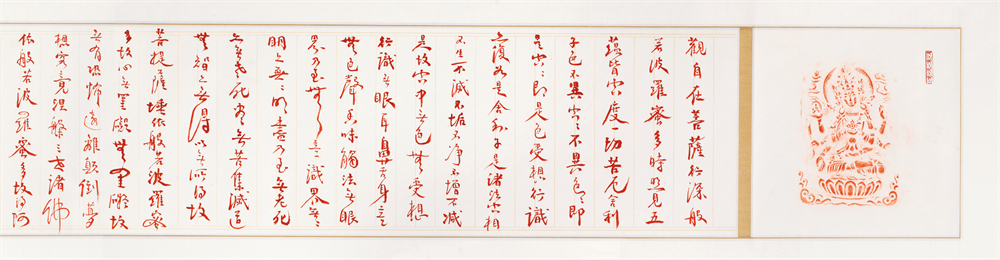 觀自在菩薩行深般
若波羅蜜多時照見五
蘊皆空度一切苦厄舍利
子色不異空々不異色々即
是空々即是色受想行識
亦復如是舍利子是諸法空相
不生不滅不垢不淨不增不減
是故空中無色無受想
行識無眼耳鼻舌身意
無色聲香味觸法無眼
界乃至無意識界無
明亦無々明盡乃至無老死
亦無老死盡無苦集滅道
無智亦無得以無所得故
菩提薩埵依般若波羅蜜
多故心無罣礙無罣礙故
無有恐怖遠離顛倒夢
想究竟涅槃三世諸佛
依般若波羅蜜多故得阿